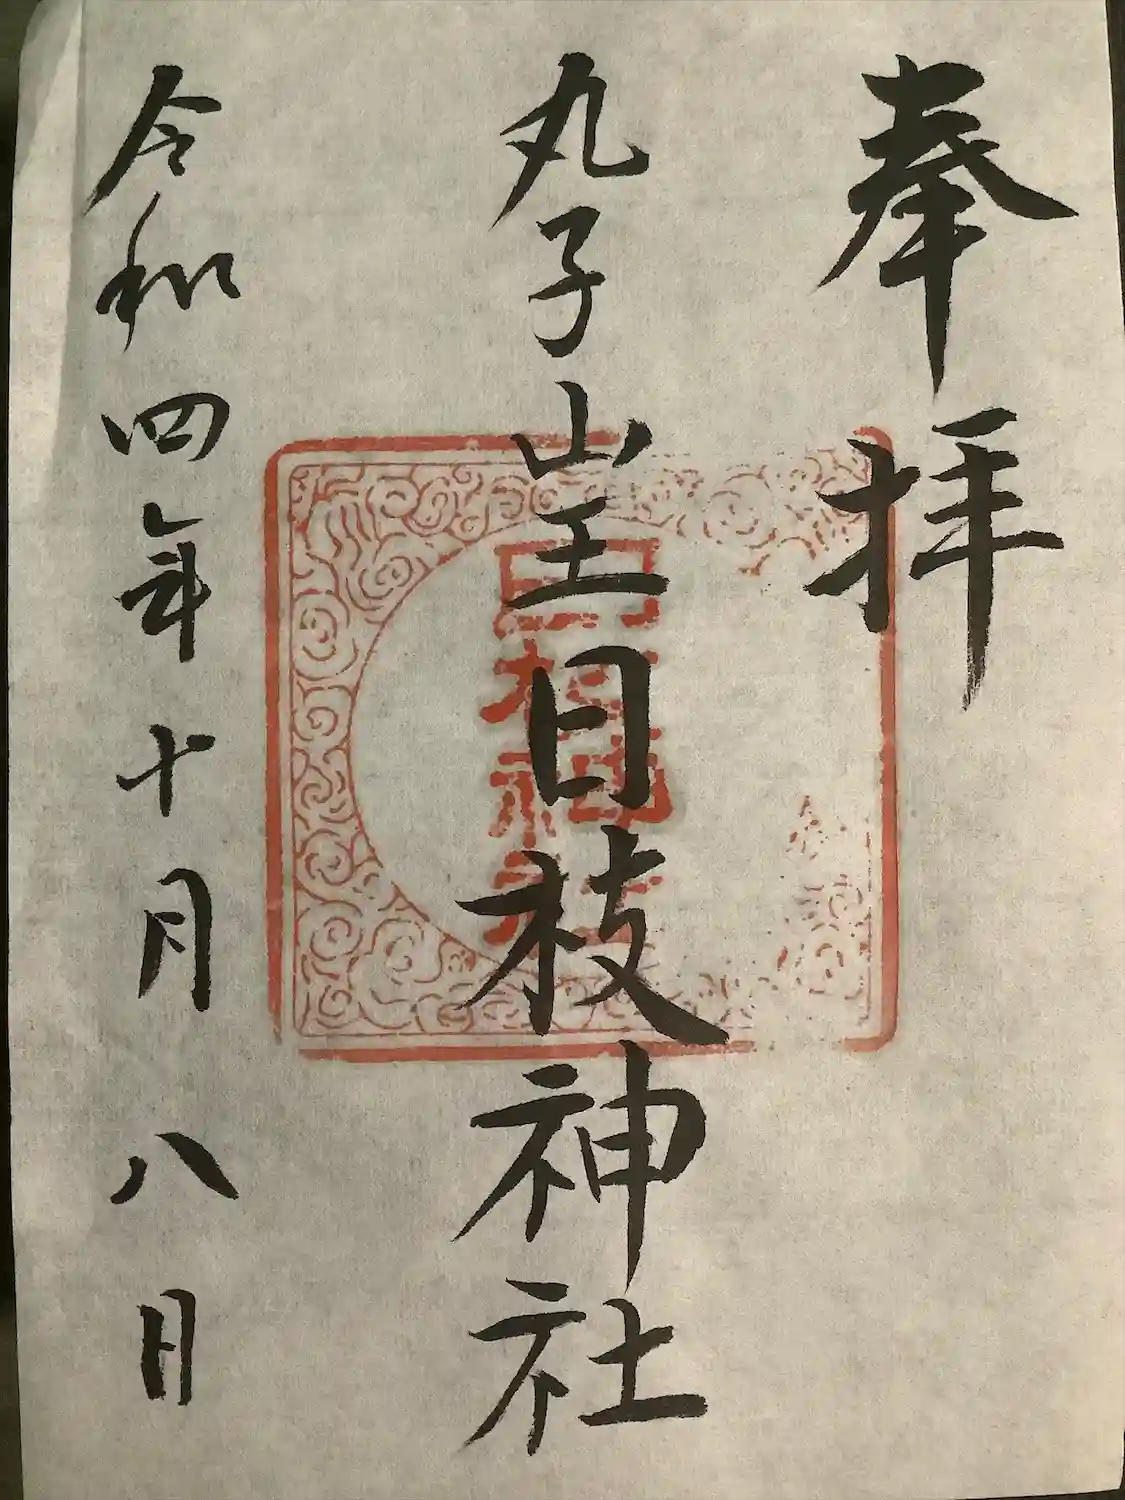 奉拝
丸子山王日枝神社
令和四年十月八日
日枝神社